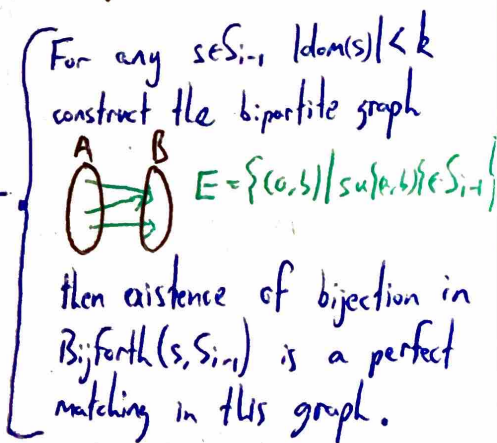 For any s∈S_{i-1} |dom(s)|<k
construct the bipartite graph
A B
E = {(a,b) | s∪{(a,b)}∈S_{i-1}}
then existence of bijection in
Bijforth(s, S_{i-1}) is a perfect
matching in this graph.